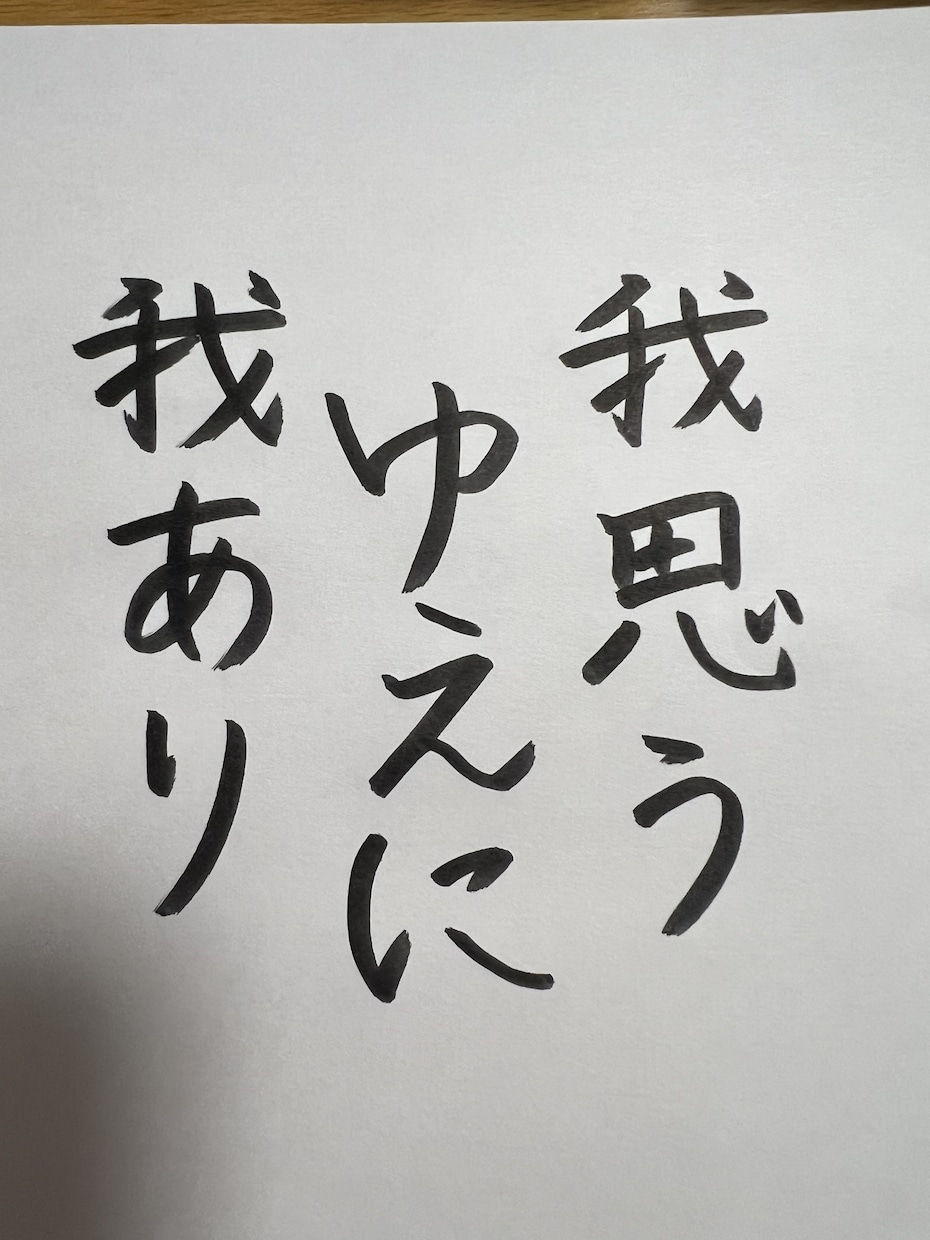 我思う
ゆえに
我あり